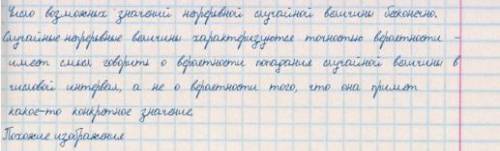 Число возможных значений непрерывной случайной величины бесконечно.
Случайные непрерывные величины характеризуются точностью вероятности –
имеет смысл говорить о вероятности попадания случайной величины в
числовой интервал, а не о вероятности того, что она примет
какое-то конкретное значение.
Похожие изображения